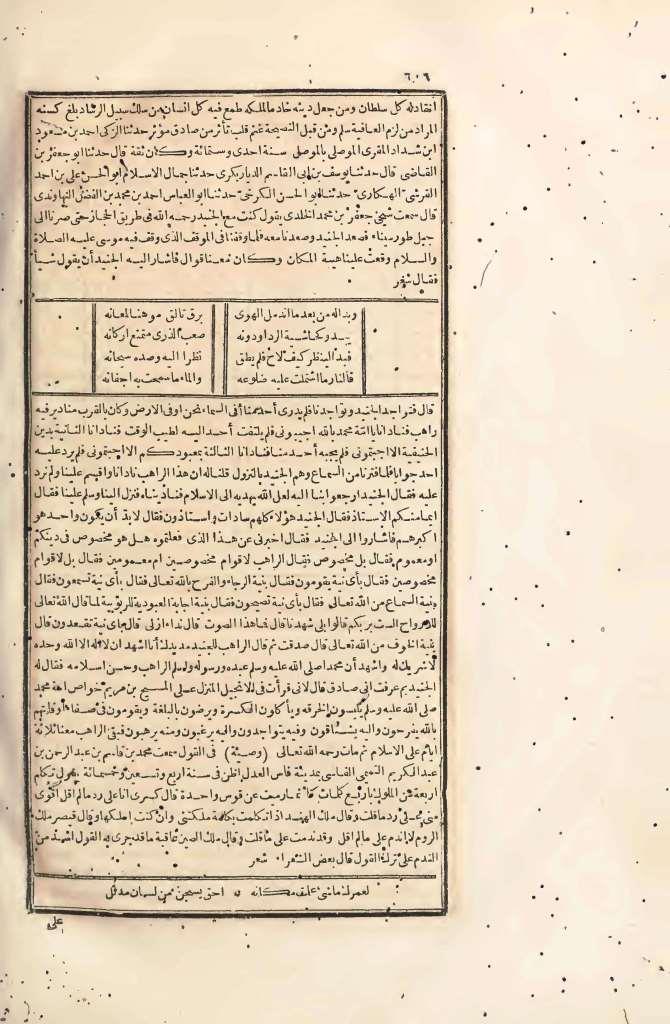 ٦٠٦
انقادله كل سلطان ومن جعل دينه خادما لملكه طمع فيه كل انسان من سلك سبيل الرشاد بلغ كنه
المراد من لزم العافية سلم ومن قبل النصيحة غنم قلب تأثر من صادق مؤثر حدثنا الزكى احمد بن مسعود
ابن شداد المقرى الموصلى بالموصل سنة احدى وستمائة وكان ثقة قال حدثنا ابو جعفر بن
القاضى قال حدثنا يوسف بن ابى القاسم الديار بكرى حدثنا جمال الاسلام ابو الحسن على بن احمد
القرشى الهكارى حدثنا ابو الحسن الكرخى حدثنا ابو العباس احمد بن محمد بن الفضل النهاوندى
قال سمعت شيخى جعفر بن محمد الخلدى يقول كنت مع الجنيد رحمه الله فى طريق الحجاز حتى صرنا الى
جبل طور سيناء فصعد الجنيد وصعدنا معه فلما وقفنا فى الموقف الذى وقف فيه موسى عليه الصلاة
والسلام وقعت علينا هيبة المكان وكان معنا قوال فاشار اليه الجنيد أن يقول شيأ
فقال شعر
وبدا له من بعد ما اندمل الهوى برق تألق موهنا لمعانه
يبدو كحاشية الرداء ودونه صعب الذرى متمنع اركانه
فبدا لينظر كيف لاح فلم يطق نظرا اليه وصده سبحانه
فالنار ما اشتملت عليه ضلوعه والماء ما سمحت به اجفانه
قال فتواجد الجنيد وتواجدنا فلم يدرى أحد منا أفى السماء نحن او فى الارض وكان بالقرب منا دير فيه
راهب فنادانا يا امّة محمد بالله اجيبونى فلم يلتفت أحد اليه لطيب الوقت فنادانا الثانية بدين
الحنيفية الا اجبتمونى فلم يجبه أحد منا فنادانا الثالثة بمعبودكم الا اجبتمونى فلم يرد عليه
احد جوابا فلما فترنا من السماع وهم الجنيد بالنزول قلنا له ان هذا الراهب نادانا واقسم علينا ولم نرد
عليه فقال الجنيد ارجعوا بنا اليه لعل الله يهديه الى الاسلام فناديناه فنزل الينا وسلم علينا فقال
ايما منكم الاستاذ فقال الجنيد هؤلاء كلهم سادات واستاذون فقال لا بد أن يكون واحد هو
اكبرهم فاشاروا الى الجنيد فقال اخبرنى عن هذا الذى فعلتموه هل هو مخصوص فى دينكم
او معموم فقال بل مخصوص فقال الراهب لاقوام مخصوصين ام معمومين فقال بل لاقوام
مخصوصين فقال بأى نية يقومون فقال بنية الرجاء والفرح بالله تعالى فقال بأى نية تسمعون فقال
بنية السماع من الله تعالى فقال بأى نية تصيحون فقال بنية اجابة العبودية للربوبية لما قال الله تعالى
للارواح ألست بربكم قالوا بلى شهدنا قال فما هذا الصوت قال نداء ازلى قال بأى نية تقعدون قال
بنية الخوف من الله تعالى قال صدقت ثم قال الراهب للجنيد مد يدك أنا اشهد ان لا اله الا الله وحده
لا شريك له واشهد أن محمدا صلى الله عليه وسلم عبده ورسوله وأسلم الراهب وحسن اسلامه فقال له
الجنيد بم عرفت انى صادق قال لانى قرأت فى الانجيل المنزل على المسيح بن مريم خواص امة محمد
صلى الله عليه وسلم يلبسون الخرقه ويأكلون الكسرة ويرضون بالبلغة ويقومون فى صفاء أوقاتهم
بالله يفرحون واليه يشتاقون وفيه يتواجدون واليه يرغبون ومنه يرهبون فبقى الراهب معنا ثلاثة
ايام على الاسلام ثم مات رحمه الله تعالى (وصية) فى القول سمعت محمد بن قاسم بن عبد الرحمن بن
عبد الكريم التميمى الفاسى بمدينة فاس العدل اظن فى سنة اربع وتسعين وخمسمائة يقول تكلم
اربعة من الملوك باربع كلمات كانما رميت عن قوس واحدة قال كسرى انا على رد مالم اقل أقوى
منى على رد ما قلت وقال ملك الهند اذا تكلمت بكلمة ملكتنى وان كنت املكها وقال قيصر ملك
الروم لا اندم على مالم اقل وقد ندمت على ما قلت وقال ملك الصين عاقبة ما قد جرى به القول اشد من
الندم على ترك القول قال بعض الشعراء شعر
لعمرك ما شئ علمت مكانه احق بسجن من لسان مذلل
على